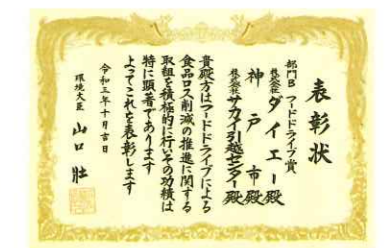 表彰状
部門B フードドライブ賞
株式会社ダイエー殿
神戸市殿
株式会社サカイ引越センター殿
貴殿方はフードドライブによる
食品ロス削減の推進に関する
取組を積極的に行いその功績は
特に顕著であります
よってこれを表彰します
令和三年十月吉日
環境大臣 山口壯